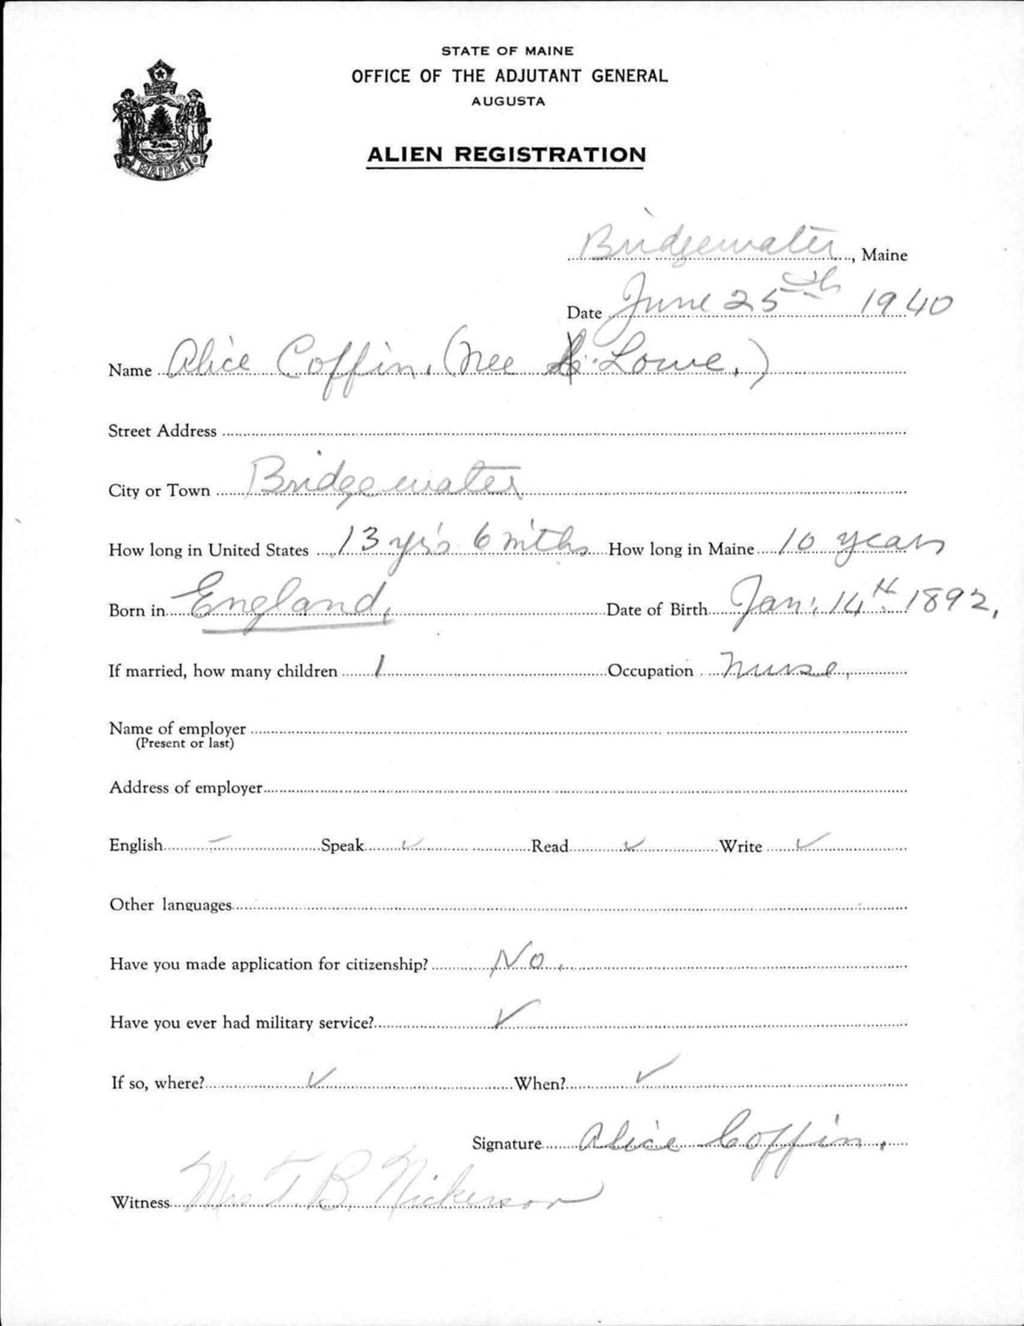 STATE OF MAINE
OFFICE OF THE ADJUTANT GENERAL
AUGUSTA
ALIEN REGISTRATION
MAINE
Bridgewater, Maine
Date June 25th 1940
Name Alice Coffin, (nee Lowe,)
Street Address
City or Town Bridgewater
How long in United States 13 yr's 6 m'ths How long in Maine 10 years
Born in England, Date of Birth Jan. 14th 1892,
If married, how many children 1 Occupation Nurse,
Name of employer
(Present or last)
Address of employer
English – Speak ✓ Read ✓ Write ✓
Other languages
Have you made application for citizenship? No.
Have you ever had military service? ✓
If so, where? ✓ When? ✓
Signature Alice Coffin.
Witness Mrs T. B. Nickerson